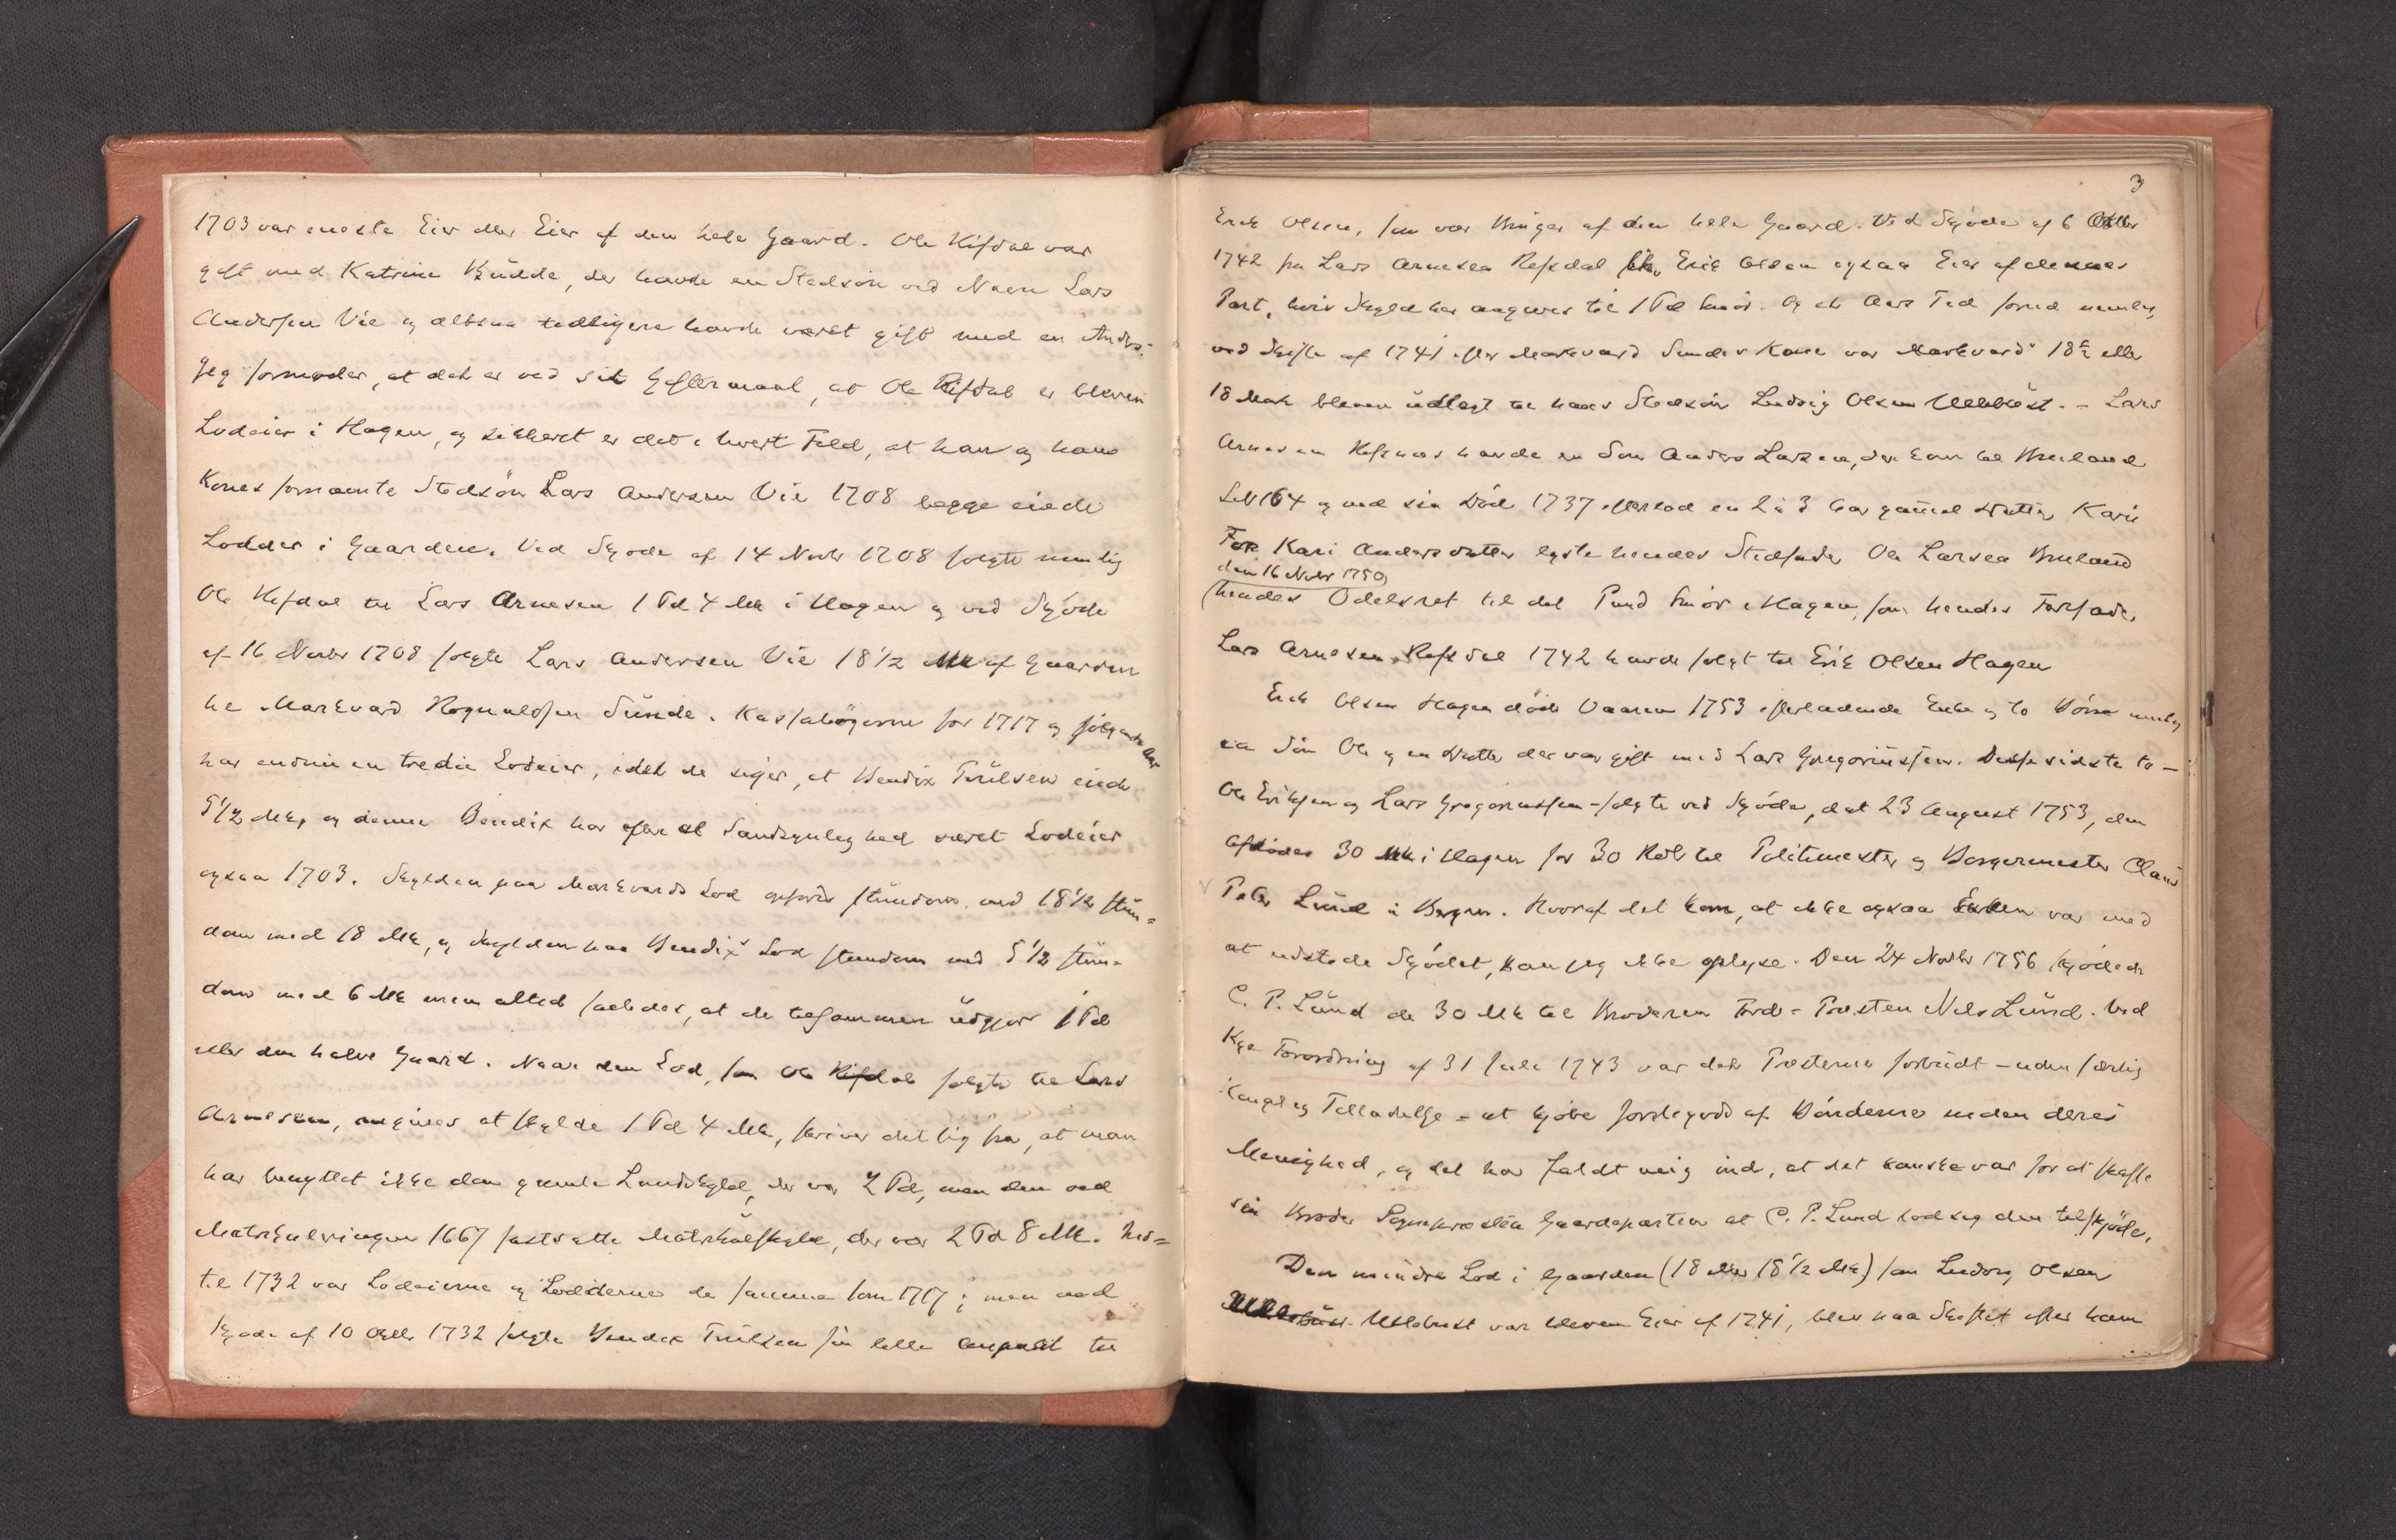 1703 var eneste Eier eller Eier af den hele Gaard. Ole Refsdal var
gift med Katrine Budde, der havde en Stedsön ved Navn Lars
Andersen Vie og altsaa tidligere havde været gift med en Anders.
Jeg formoder, at det er ved sit Giftermaal, at Ole Refsdal er bleven
Lodeier i Hagen, og sikkert er det i hvert Fald, at han og hans
Kones fornævnte Stedsön Lars Andersen Vie 1708 begge eiede
Lodder i Gaarden. Ved Skjøde af 14 Novbr 1708 solgte nemlig
Ole Refsdal til Lars Arnesen 1 Pd 4 Mk i Hagen og ved Skjöde
af 16 Novbr 1708 solgte Lars Andersen Vie 18 1/2 Mk af Gaarden
til Markvard Rognaldsen Sunde. Kassabögerne for 1717 og fölgende Aar
har endnu en tredie Lodeier, idet de siger, at Bendix Truelsen eiede
5 1/2 Mk, og denne Bendix har efter al Sandsynlighed været Lodeier
ogsaa 1703. Skylden paa Markvards Lod opföres stundom med 18 1/2 stun=
dom med 18 Mk, og Skylden paa Bendix' Lod stundom med 5 1/2 stun=
dom med 6 Mk men altid saaledes, at de tilsammen udgjör 1 Pd
eller den halve Gaard. Naar den Lod, som Ole Refsdal solgte til Lars
Arnesen, angives at skylde 1 Pd 4 Mk, skriver det sig fra, at man
har benyttet ikke den gamle Landskyld, der var 2 Pd, men den ved
Matrikuleringen 1667 fastsatte Matrikulskyld, der var 2 Pd 8 Mk. Ind=
til 1732 var Lodeierne og Lodderne de samme som 1717; men ved
Skjøde af 10 Octbr 1732 solgte Bendix Truelsen sin lille Anpart til
3
Erik Olsen, som var Bruger af den hele Gaard. Ved Skjöde af 6 Octbr
1742 fra Lars Arnesen Refsdal blev Erik Olsen ogsaa Eier af dennes
Part, hvis Skyld her angives til 1 Pd Smör. Og et Aars Tid forud nemlig
ved Skifte af 1741 efter Markvard Sundes Kone var Markvards 18 1/2 eller
18 Mark bleven udlagt til hans Stedsön Ludvig Olsen Ullebust. - Lars
Arnesen Refsnes havde en Sön Anders Larsen, der kom til Bruland
LN 164 og ved sin Död 1737 efterlod en 2 à 3 Aar gammel Datter Kari
For Kari Andersdatter lyste hendes Stedfader Ole Larsen Bruland
den 16 Novbr 1750,
hendes Odelsret til det Pund Smör i Hagen, som hendes Farfader,
Lars Arnesen Refsdal 1742 havde solgt til Erik Olsen Hagen
Erik Olsen Hagen döde Vaaren 1753 efterladende Enke og to Börn nemlig
en Sön Ole og en Datter der var gift med Lars Gregoriussen. Disse sidste to -
Ole Eriksen og Lars Gregoriussen - solgte ved Skjöde, dat 23 August 1753, den
Afdødes 30 Mk i Hagen for 30 Rdlr til Politimester og Borgermester Claus
Peter Lund i Bergen. Hvoraf det kom, at ikke ogsaa Enken var med
at udstede Skjödet, kan jeg ikke oplyse. Den 24 Novbr 1756 skjödede
C. P. Lund de 30 Mk til Broderen Förde-Præsten Nils Lund. Ved
Kgl Forordning af 31 Juli 1743 var det Præsterne forbudt - uden særlig
kongelig Tilladelse - at kjöbe Jordegods af Bönderne inden deres
Menighed, og det har faldt mig ind, at det kanske var for at skaffe
sin Broder Sognepræsten Gaardeparten at C. P. Lund lod sig den tilskjöde.
Den mindre Lod i Gaarden (18 eller 18 1/2 Mk) som Ludvig Olsen
Ullebust var bleven Eier af 1741, blev paa Skiftet efter ham